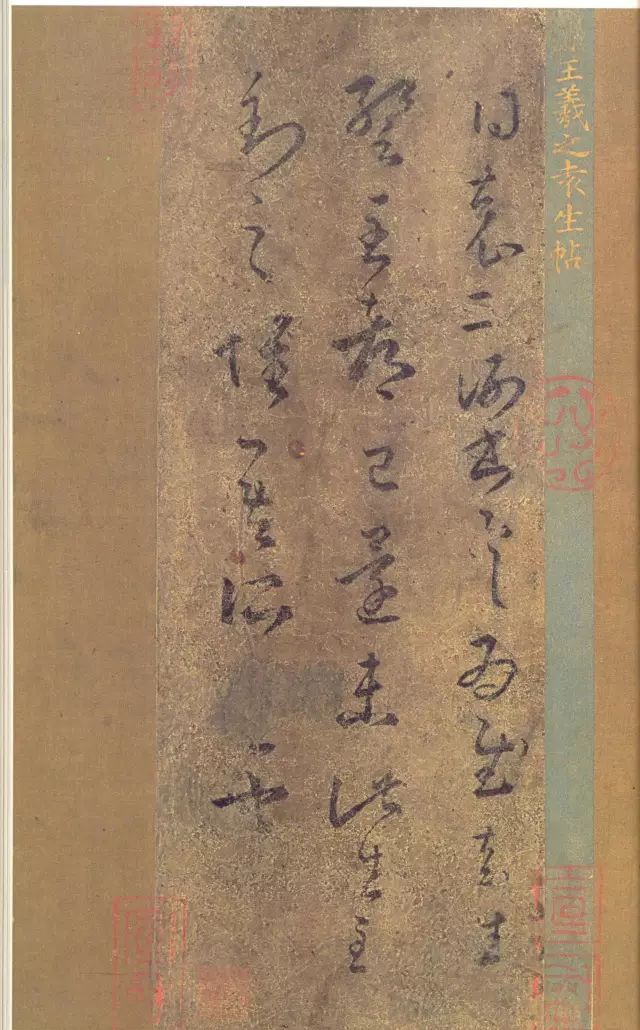 王羲之袁生帖
得袁二謝書具為慰袁生
暫至都已還未此生至
到之懷吾所也